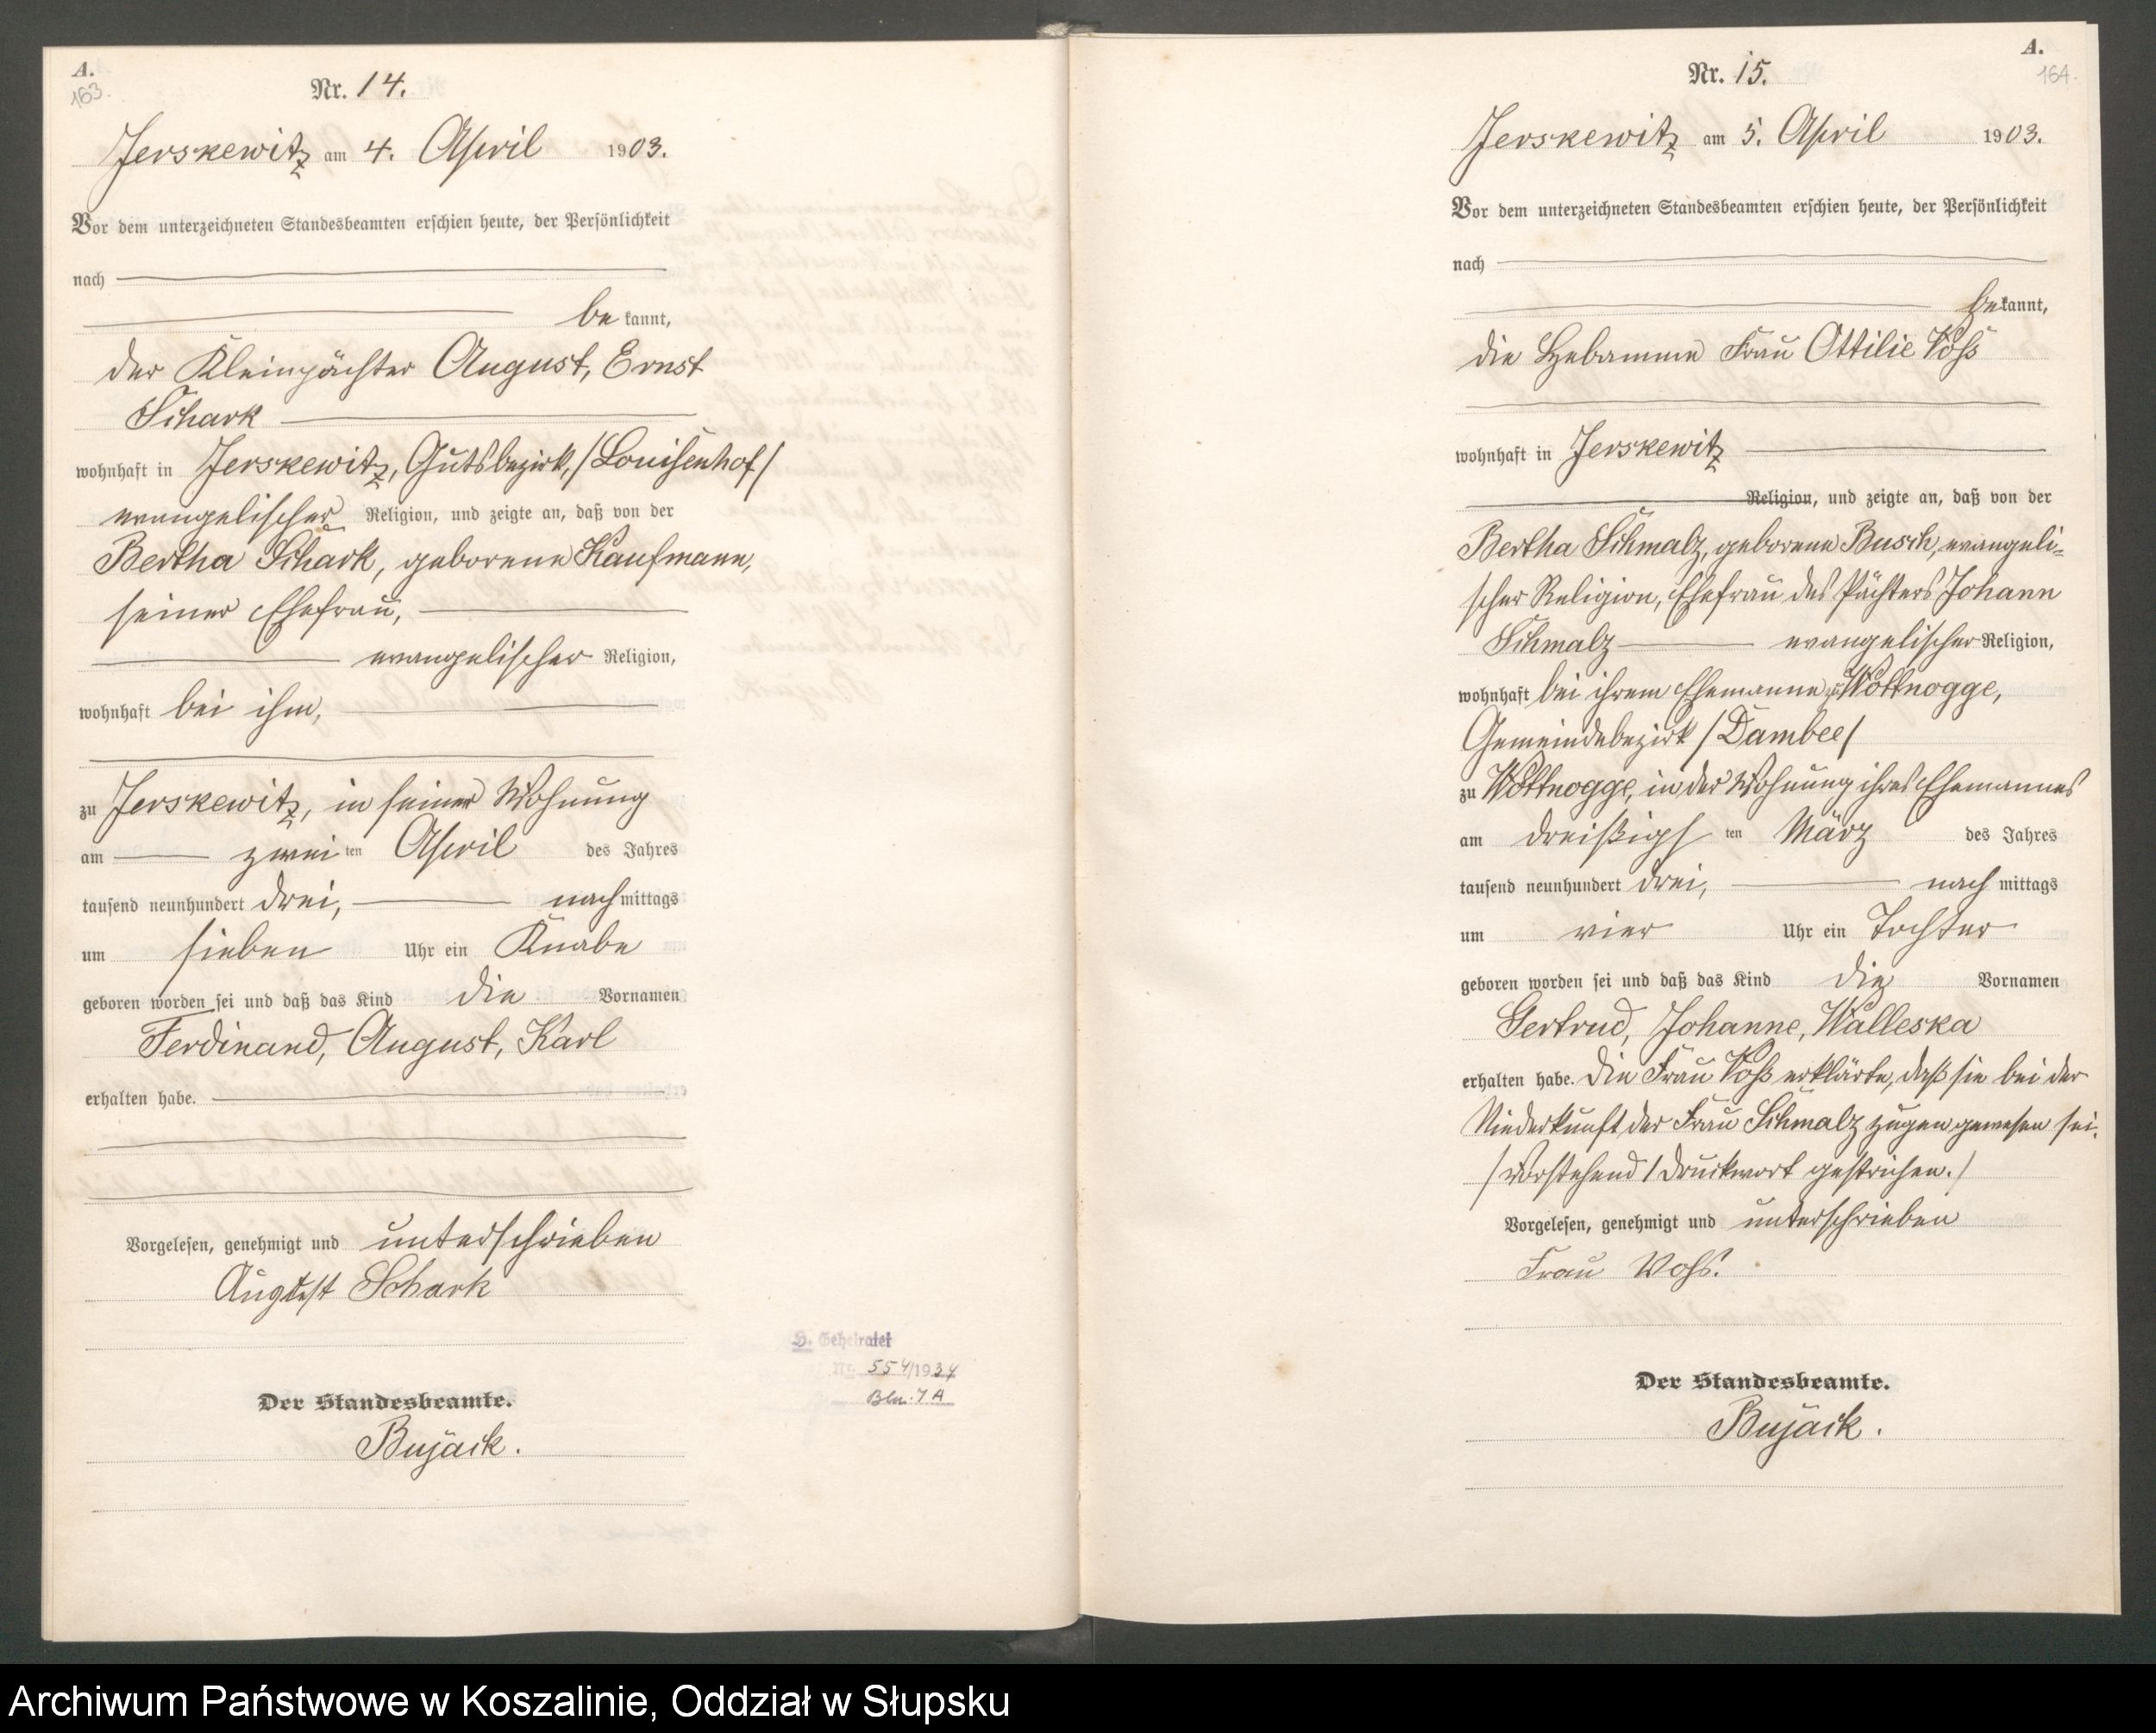 A.
163.
Nr. 14.
Jerskewitz am 4. April 1903.
Vor dem unterzeichneten Standesbeamten erschien heute, der Persönlichkeit
nach
be kannt,
der Kleinpächter August, Ernst
Schark
wohnhaft in Jerskewitz, Gutsbezirk, /Louisenhof/
evangelischer Religion, und zeigte an, daß von der
Bertha Schark, geborene Kaufmann,
seiner Ehefrau,
evangelischer Religion,
wohnhaft bei ihm,
zu Jerskewitz, in seiner Wohnung
am zwei ten April des Jahres
tausend neunhundert drei, nach mittags
um sieben Uhr ein Knabe
geboren worden sei und daß das Kind die Vornamen
Ferdinand, August, Karl
erhalten habe.
Vorgelesen, genehmigt und unterschrieben
August Schark
H. Geheiratet
Nr. 554/1934
Bln. 7A
Der Standesbeamte.
Bujack.
A.
164.
Nr. 15.
Jerskewitz am 5. April 1903.
Vor dem unterzeichneten Standesbeamten erschien heute, der Persönlichkeit
nach
bekannt,
die Hebamme Frau Ottilie Voß
wohnhaft in Jerskewitz
Religion, und zeigte an, daß von der
Bertha Schmalz, geborene Busch, evangeli-
scher Religion, Ehefrau des Pächters Johann
Schmalz evangelischer Religion,
wohnhaft bei ihrem Ehemanne zu Wottnogge,
Gemeindebezirk /Dambee/
zu Wottnogge, in der Wohnung ihres Ehemannes
am dreißigs ten März des Jahres
tausend neunhundert drei, nach mittags
um vier Uhr ein Tochter
geboren worden sei und daß das Kind die Vornamen
Gertrud, Johanne, Walleska
erhalten habe. Die Frau Voß erklärte, daß sie bei der
Niederkunft der Frau Schmalz zugen gewesen sei.
/Vorstehend 1 Druckwort gestrichen./
Vorgelesen, genehmigt und unterschrieben
Frau Voß.
Der Standesbeamte.
Bujack.
Archiwum Państwowe w Koszalinie, Oddział w Słupsku